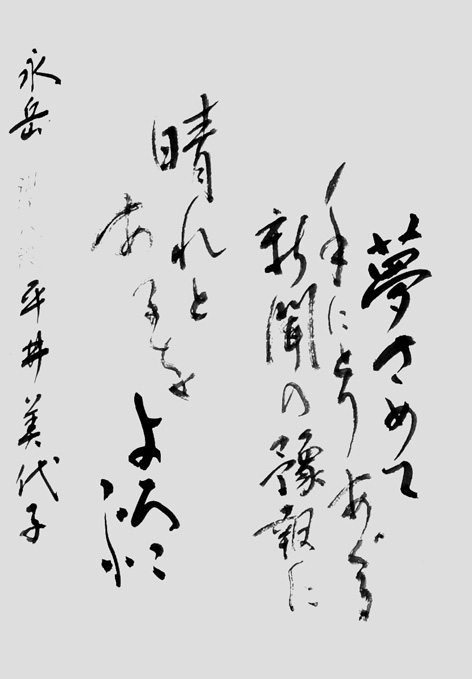 夢さめて
手にとりあぐる
新聞の豫報に
晴れと
あるを
よろこ
永岳
平井美代子